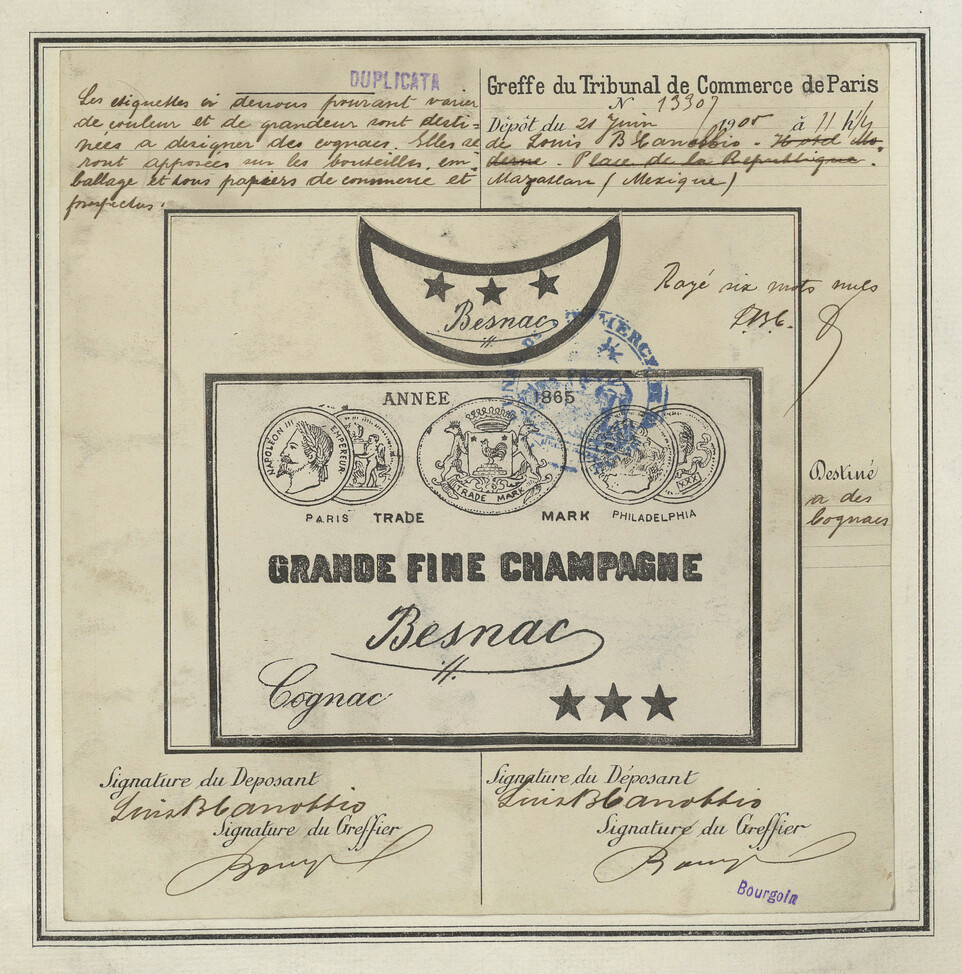 DUPLICATA
Les etiquettes ci dessous pouvant varier
de couleur et de grandeur sont desti=
nées a designer des cognacs. Elles se
ront apposées sur les bouteilles, em
ballage et tous papiers de commerce et
prospectus.
Greffe du Tribunal de Commerce de Paris
N 13307
Dépôt du 21 Juin 1900 à 11 h/4
de Louis B Canobbio - Hotel Mo
derne - Place de la Republique.
Mazatlan (Mexique)
Besnac
Rayé six mots nuls
LBC.
ANNEE 1865
NAPOLEON III EMPEREUR
TRADE MARK
XXX
PARIS TRADE MARK PHILADELPHIA
GRANDE FINE CHAMPAGNE
Besnac
Cognac
Destiné
a des
Cognacs
Signature du Deposant
Luis B Canobbio
Signature du Greffier
Signature du Déposant
Luis B Canobbio
Signature du Greffier
Bourgoin